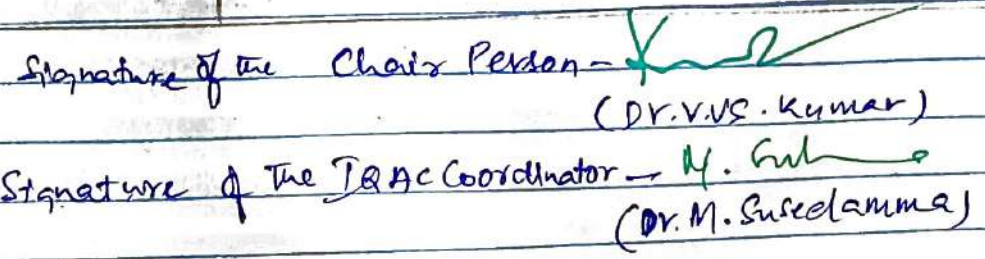 Signature of the Chair Person -
(Dr. V.V.S. Kumar)
Signature of The IQAC Coordinator - M.
(Dr. M. Suseelamma)